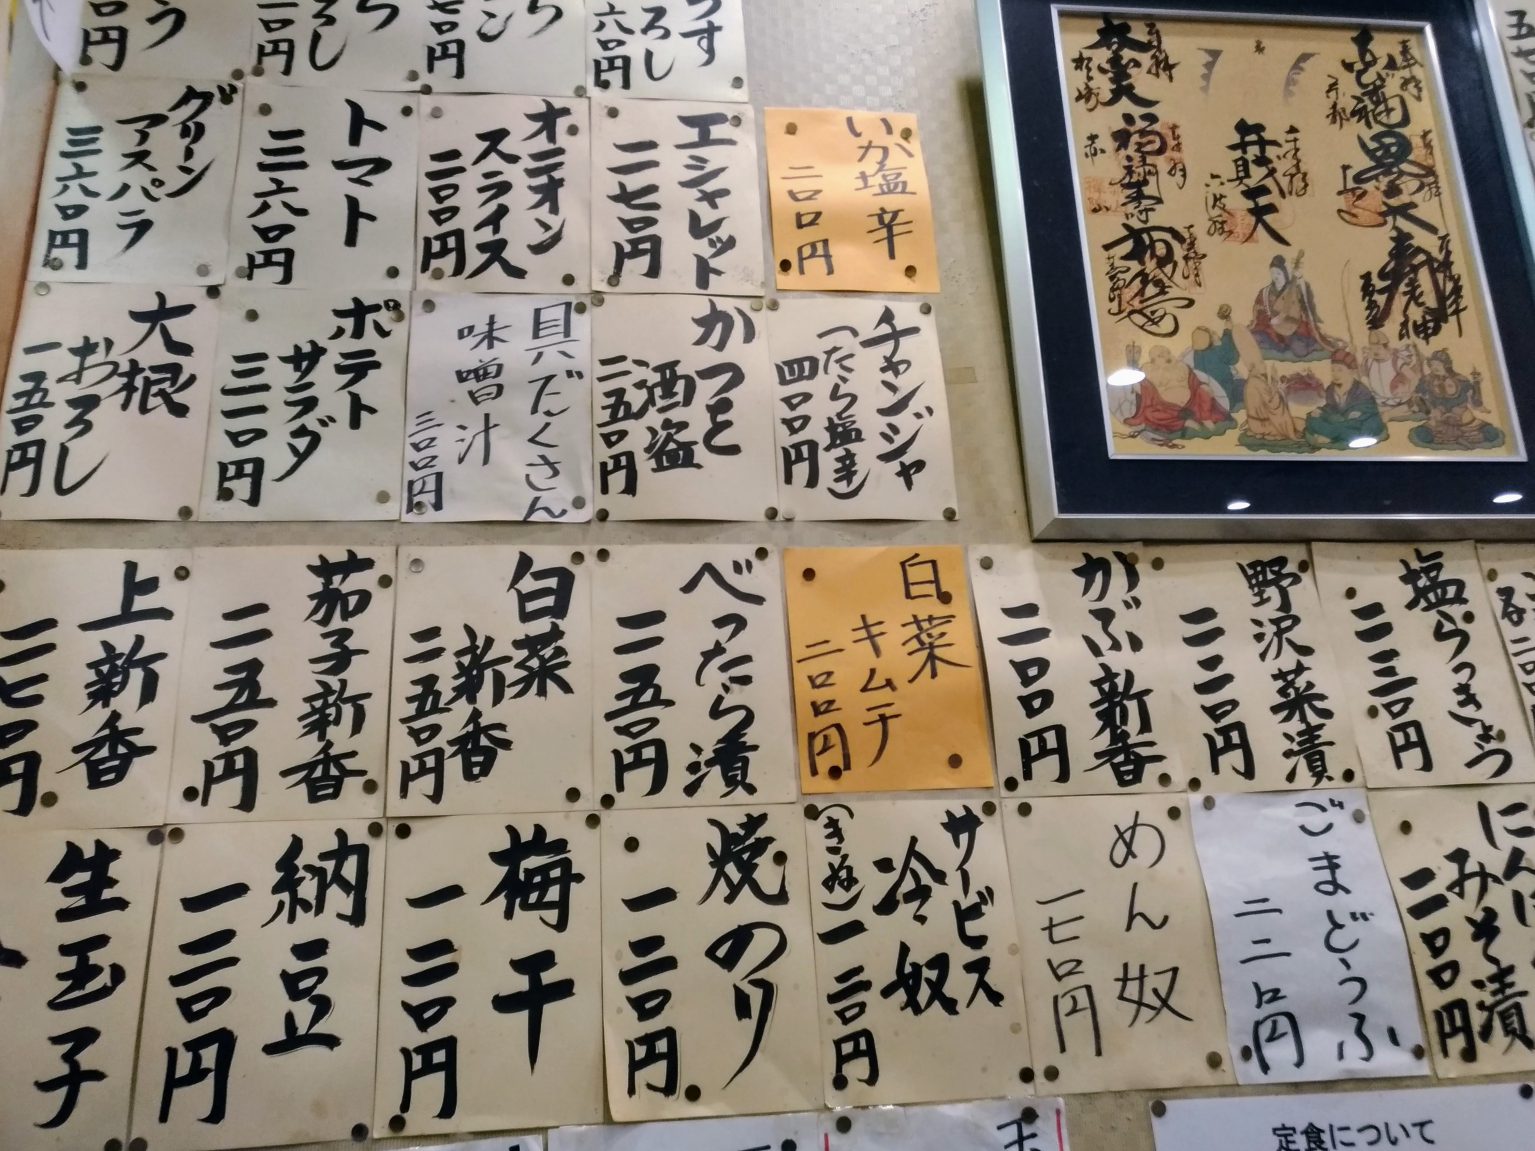 グリーン
アスパラ
三六〇円
トマト
二六〇円
オニオン
スライス
二〇〇円
エシャレット
二七〇円
いか塩辛
二〇〇円
大根
おろし
一五〇円
ポテト
サラダ
三一〇円
具だくさん
味噌汁
三〇〇円
かつを
酒盗
二五〇円
チャンジャ
(たら塩辛)
四〇〇円
上新香
二七〇円
茄子新香
二五〇円
白菜
新香
二五〇円
べったら漬
二五〇円
白菜
キムチ
二〇〇円
かぶ新香
二〇〇円
野沢菜漬
二二〇円
塩らっきょう
二三〇円
生玉子
納豆
一二〇円
梅干
一二〇円
焼のり
一二〇円
サービス
冷奴
(きぬ)一二〇円
めん奴
一七〇円
ごまどうふ
二二〇円
にんにく
みそ漬
二〇〇円
弁財天
定食について